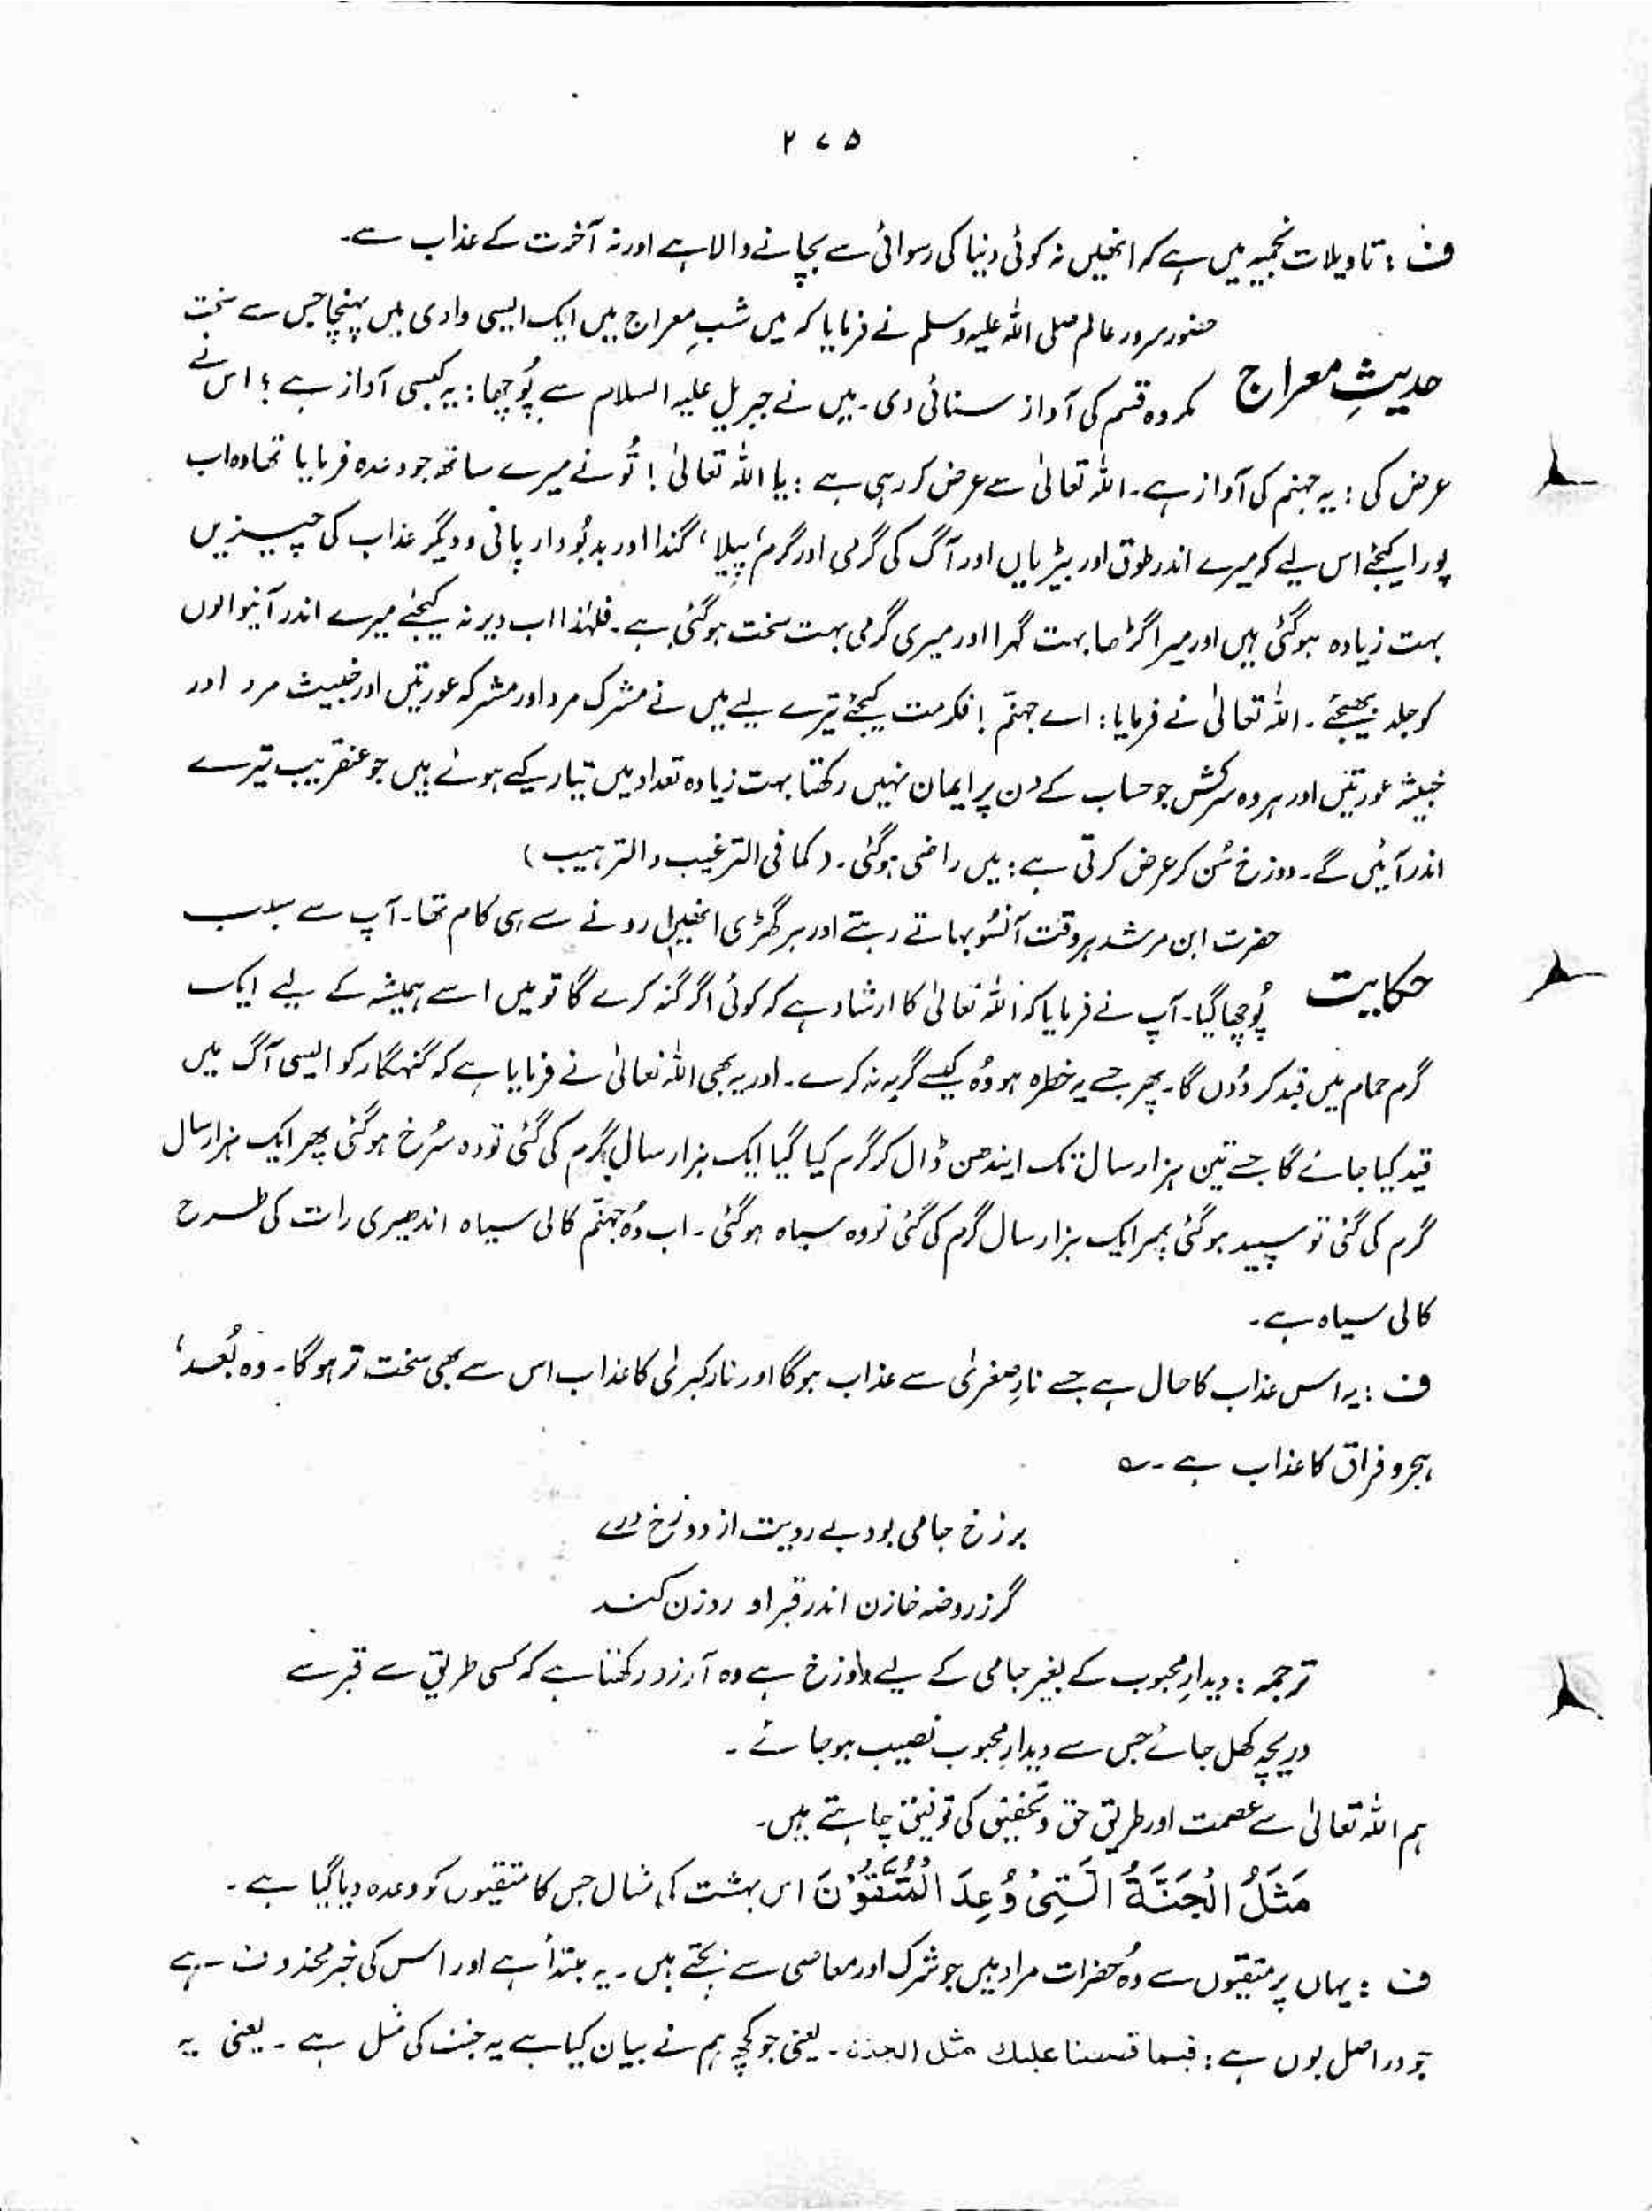 ۲۷۵
ف : تاویلات نجمیہ میں ہے کہ انھیں نہ کوئی دنیا کی رسوائی سے بچانے والا ہے اور نہ آخرت کے عذاب سے۔
حضور سرور عالم صلی اللہ علیہ وسلم نے فرمایا کہ میں شبِ معراج میں ایک ایسی وادی میں پہنچا جس سے سخت
حدیثِ معراج مکروہ قسم کی آواز سنائی دی۔ میں نے جبریل علیہ السلام سے پُوچھا: یہ کیسی آواز ہے؟ اس نے
عرض کی: یہ جہنم کی آواز ہے۔ اللہ تعالیٰ سے عرض کر رہی ہے: یا اللہ تعالیٰ! تُو نے میرے ساتھ جو وعدہ فرمایا تھا وہ اب
پورا کیجئے اس لیے کہ میرے اندر طوق اور بیڑیاں اور آگ کی گرمی اور گرم، پیلا، گندا اور بدبُودار پانی و دیگر عذاب کی چیزیں
بہت زیادہ ہوگئی ہیں اور میرا گڑھا بہت گہرا اور میری گرمی بہت سخت ہوگئی ہے۔ فلہٰذا اب دیر نہ کیجئے میرے اندر آنیوالوں
کو جلد بھیجئے۔ اللہ تعالیٰ نے فرمایا: اے جہنّم! فکر مت کیجئے تیرے لیے میں نے مشرک مرد اور مشرکہ عورتیں اور خبیث مرد اور
خبیثہ عورتیں اور ہر وہ سرکش جو حساب کے دن پر ایمان نہیں رکھتا بہت زیادہ تعداد میں تیار کیے ہوئے ہیں جو عنقریب تیرے
اندر آئیں گے۔ دوزخ سُن کر عرض کرتی ہے: میں راضی ہوگئی۔ (کما فی الترغیب والترہیب)
حضرت ابن مرشد ہر وقت آنسُو بہاتے رہتے اور ہر گھڑی انھیں رونے سے ہی کام تھا۔ آپ سے سبب
حکایت پُوچھا گیا۔ آپ نے فرمایا کہ اللہ تعالیٰ کا ارشاد ہے کہ کوئی اگر گنہ کرے گا تو میں اسے ہمیشہ کے لیے ایک
گرم حمام میں قید کر دُوں گا۔ پھر جسے یہ خطرہ ہو وُہ کیسے گریہ نہ کرے۔ اور یہ بھی اللہ تعالیٰ نے فرمایا ہے کہ گنہگار کو ایسی آگ میں
قید کیا جائے گا جسے تین ہزار سال تک ایندھن ڈال کر گرم کیا گیا ایک ہزار سال گرم کی گئی تو وہ سُرخ ہوگئی پھر ایک ہزار سال
گرم کی گئی تو سپید ہوگئی پھر ایک ہزار سال گرم کی گئی تو وہ سیاہ ہوگئی۔ اب وُہ جہنّم کالی سیاہ اندھیری رات کی طرح
کالی سیاہ ہے۔
ف : یہ اس عذاب کا حال ہے جسے نارِ صغریٰ سے عذاب ہوگا اور نار کبریٰ کا عذاب اس سے بھی سخت تر ہوگا۔ وہ بُعد،
ہجر و فراق کا عذاب ہے۔ ؎
برزخ جامی بود بے رویت از دوزخ درے
گر ز روضہ خازن اندر قبر او روزن کند
ترجمہ : دیدارِ محبوب کے بغیر جامی کے لیے دوزخ ہے وہ آرزو رکھتا ہے کہ کسی طریق سے قبر سے
دریچہ کھل جائے جس سے دیدارِ محبوب نصیب ہوجائے۔
ہم اللہ تعالیٰ سے عصمت اور طریق حق و تحقیق کی توفیق چاہتے ہیں۔
مَثَلُ الْجَنَّةِ الَّتِیْ وُعِدَ الْمُتَّقُوْنَ اس بہشت کی مثال جس کا متقیوں کو وعدہ دیا گیا ہے۔
ف : یہاں پر متقیوں سے وُہ حضرات مراد ہیں جو شرک اور معاصی سے بچتے ہیں۔ یہ مبتدأ ہے اور اس کی خبر محذوف ہے
جو دراصل یوں ہے: فیما قصصنا علیك مثل الجنة۔ یعنی جو کچھ ہم نے بیان کیا ہے یہ جنت کی مثل ہے۔ یعنی یہ